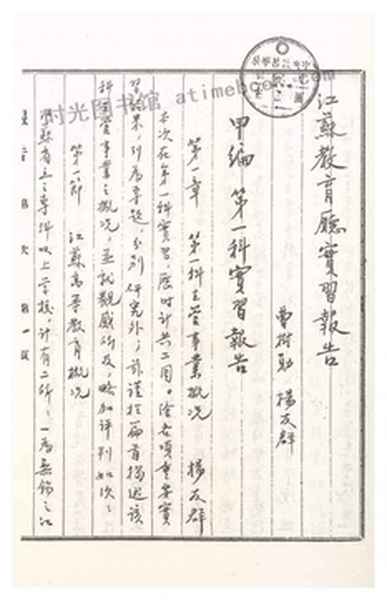 江蘇教育廳實習報告
曹樹勛 楊友群
甲編 第一科實習報告
第一章 第一科主管事業概況 楊友群
本次在第一科實習,歷時計共二周。除各項重要實
習結果,列為專題分別研究外,謹於篇首概述該
科主管事業之概況,並就觀感所及,略加評判如次:
第一節 江蘇高等教育概況
蘇省立之專科以上學校,計有二所,一為無錫之江
时光图书馆 atimebook.com